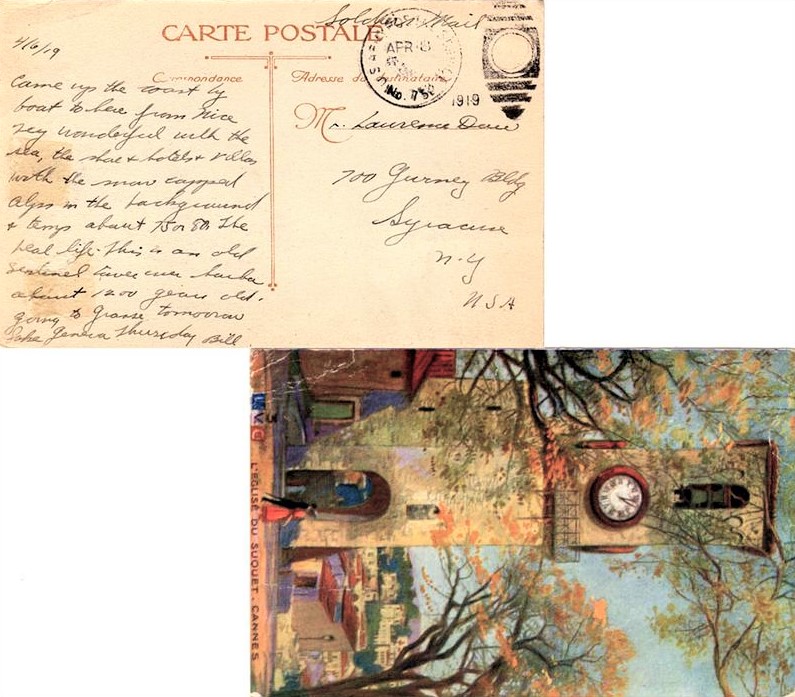 Soldier's Mail
CARTE POSTALE
4/6/19
APR 8
No. 75
1919
Correspondance
Adresse du Destinataire
Came up the coast by
boat to here from Nice
very wonderful with the
sea, the shore & hotels & villas
with the snow capped
alps in the background
& temp about 75 or 80. The
real life. This is an old
sentinel tower over harbor
about 1200 years old.
going to Grasse tomorrow
Lake Geneva Thursday Bill
Mr. Laurence
700 Gurney Bldg
Syracuse
N-Y
USA
L'EGLISE DU SUQUET - CANNES